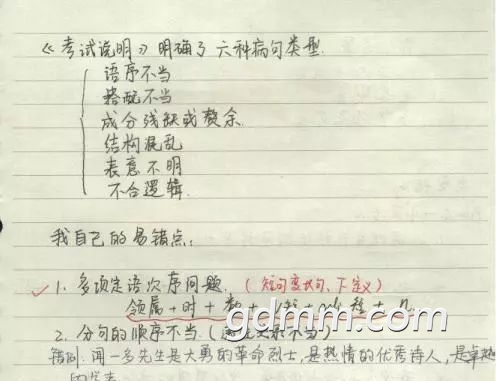 《考试说明》明确了六种病句类型.
语序不当
搭配不当
成分残缺或赘余.
结构混乱
表意不明
不合逻辑.
我自己的易错点:
✓ 1. 多项定语次序问题. (短句变长句、下定义)
领属+时+数+
2. 分句的顺序不当. (
gdmm.com
错例: 闻一多先生是大勇的革命烈士,是热情的优秀诗人,是卓越
的学者